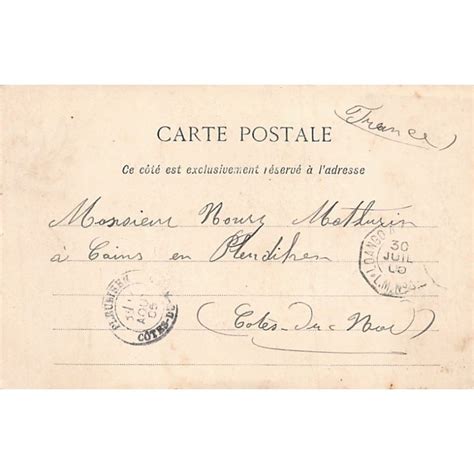 (France)
CARTE POSTALE
Ce côté est exclusivement réservé à l'adresse
Monsieur Noury Mathurin
à Cains en Pleudihen
(Cotes-du-Nord)
LOANGO
30
JUIL
05
L.M. No
AOU
05
COTES-DU-N